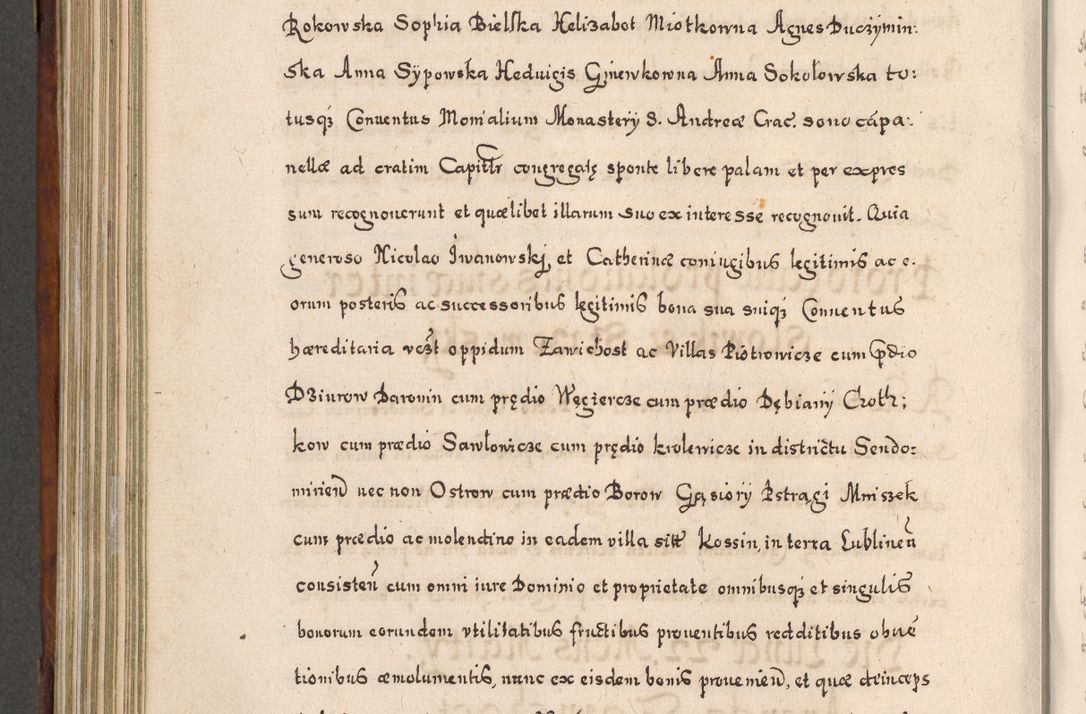 Rokowska Sophia Bielska Helizabet Miotkowna Agnes Duczymin:
ska Anna Sypowska Heduigis Gniewkowna Anna Sokołowska to:
tusq; Conuentus Monialium Monastery S. Andreæ Crac. sono cápa:
nellæ ad cratim Capitlr congregatę sponte libere palam et per expres
sum recognouerunt et quælibet illarum suo ex interesse recognouit. Quia
generoso Nicolao Iwanowskj, et Catherinæ coniugibus legitimis ac e:
orum posteris ac successoribus legitimis bona sua suiq; Conuentus
hæreditaria vczt oppidum Zawichost ac Villas Piotrowicze cum prędio
Dziurow Daromin cum prędio Węgiercze cum prædio Dębiany Chotk;
kow cum prædio Sawłowicze cum prędio krolewicze in districtu Sendo:
mirien nec non Ostrow cum prædio Borow Gąsiory Pstrągi Mniszek
cum prædio ac molendino in eadem villa sitt Kossin, in terra Lublinen
consisten cum omni iure Dominio et proprietate omnibusq; et singulis
bonorum eorundem vtilitatibus fructibus prouentibus redditibus obue
tionibus æmolumentis, nunc ex eisdem bonis prouenien, et quæ deinceps